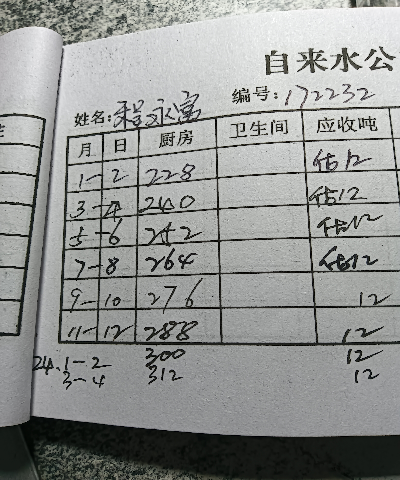 自来水公
姓名: 程永富 编号: 172232
月 日 厨房 卫生间 应收吨
1-2 228 估12
3-4 240 估12
5-6 252 估12
7-8 264 估12
9-10 276 12
11-12 288 12
24.1-2 300 12
3-4 312 12